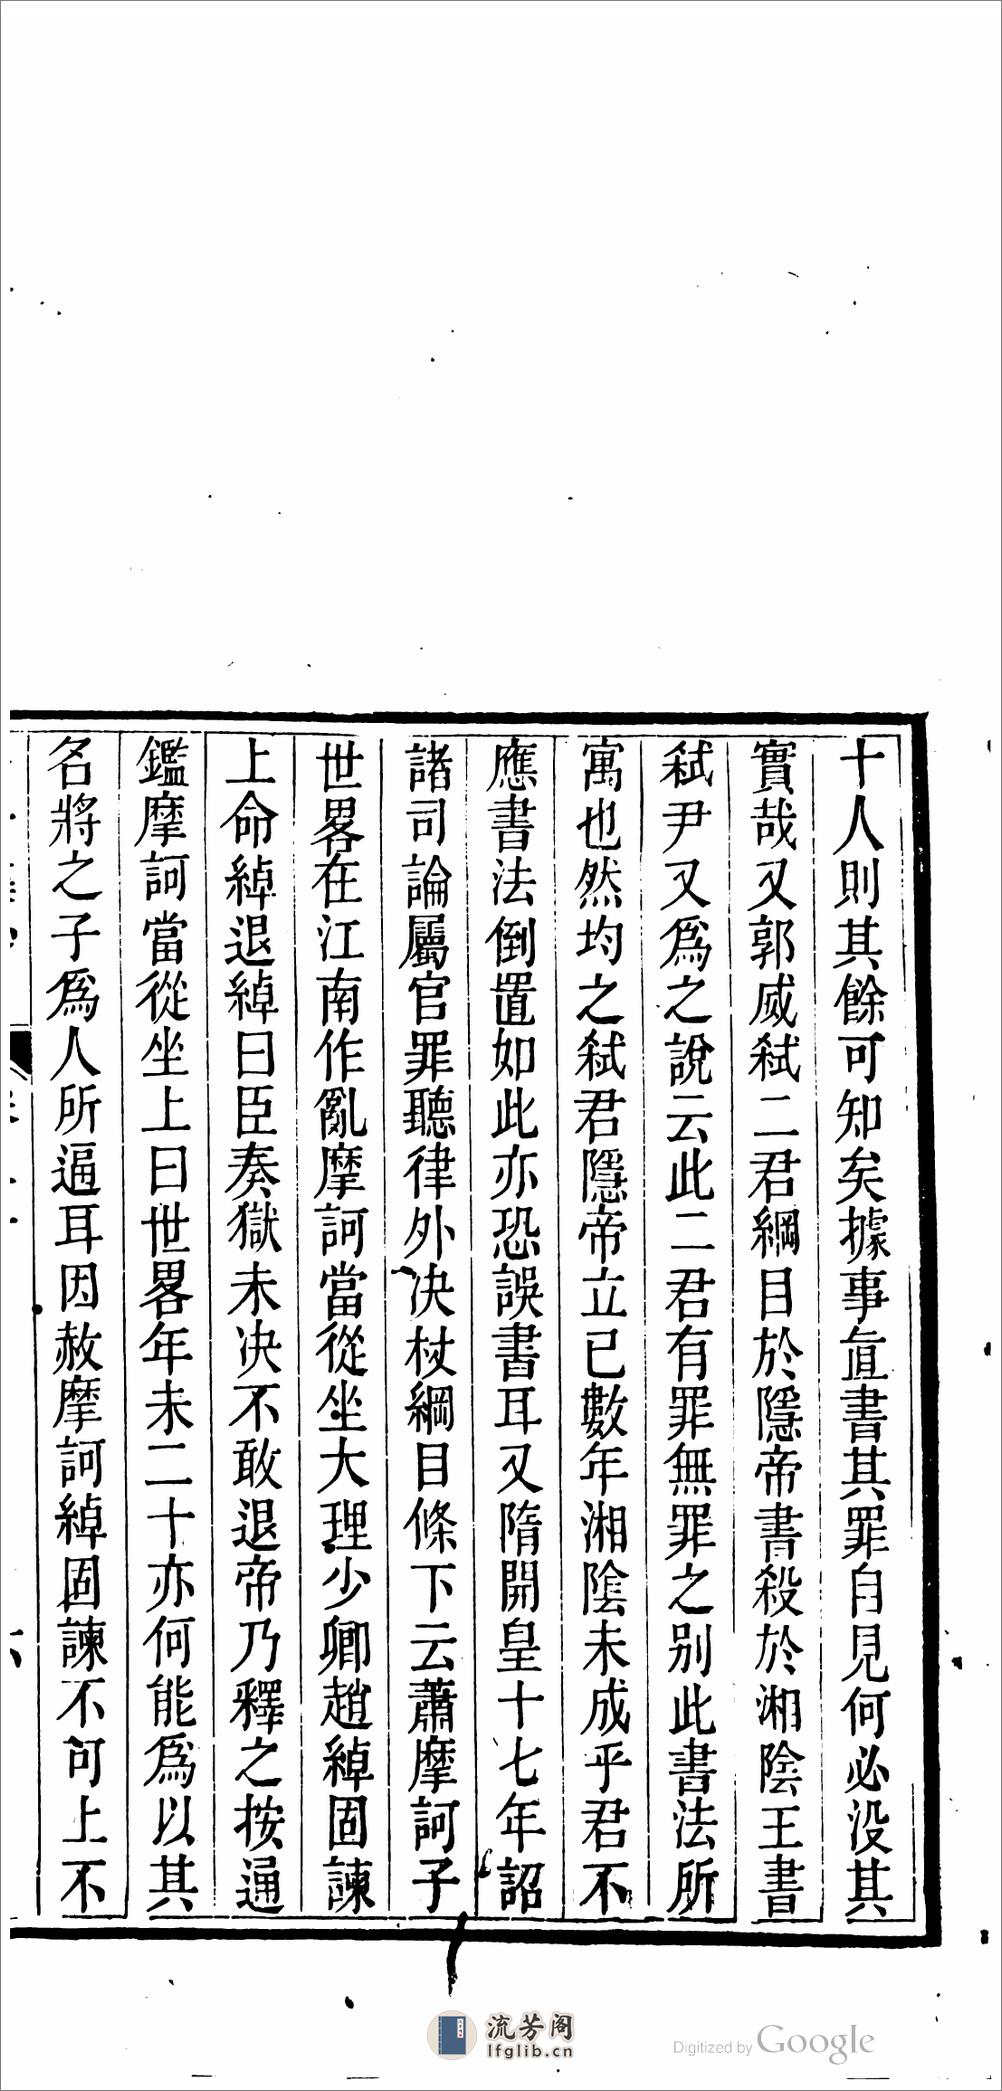 十人則其餘可知矣據事直書其罪自見何必没其
實哉又郭威弑二君綱目於隱帝書殺於湘陰王書
弑尹又爲之說云此二君有罪無罪之别此書法所
寓也然均之弑君隱帝立已數年湘陰未成乎君不
應書法倒置如此亦恐誤書耳又隋開皇十七年詔
諸司論屬官罪聽律外决杖綱目條下云蕭摩訶子
世畧在江南作亂摩訶當從坐大理少卿趙綽固諫
上命綽退綽曰臣奏獄未决不敢退帝乃釋之按通
鑑摩訶當從坐上曰世畧年未二十亦何能爲以其
名將之子爲人所逼耳因赦摩訶綽固諫不可上不
流芳阁
lfglib.cn
Digitized by Google